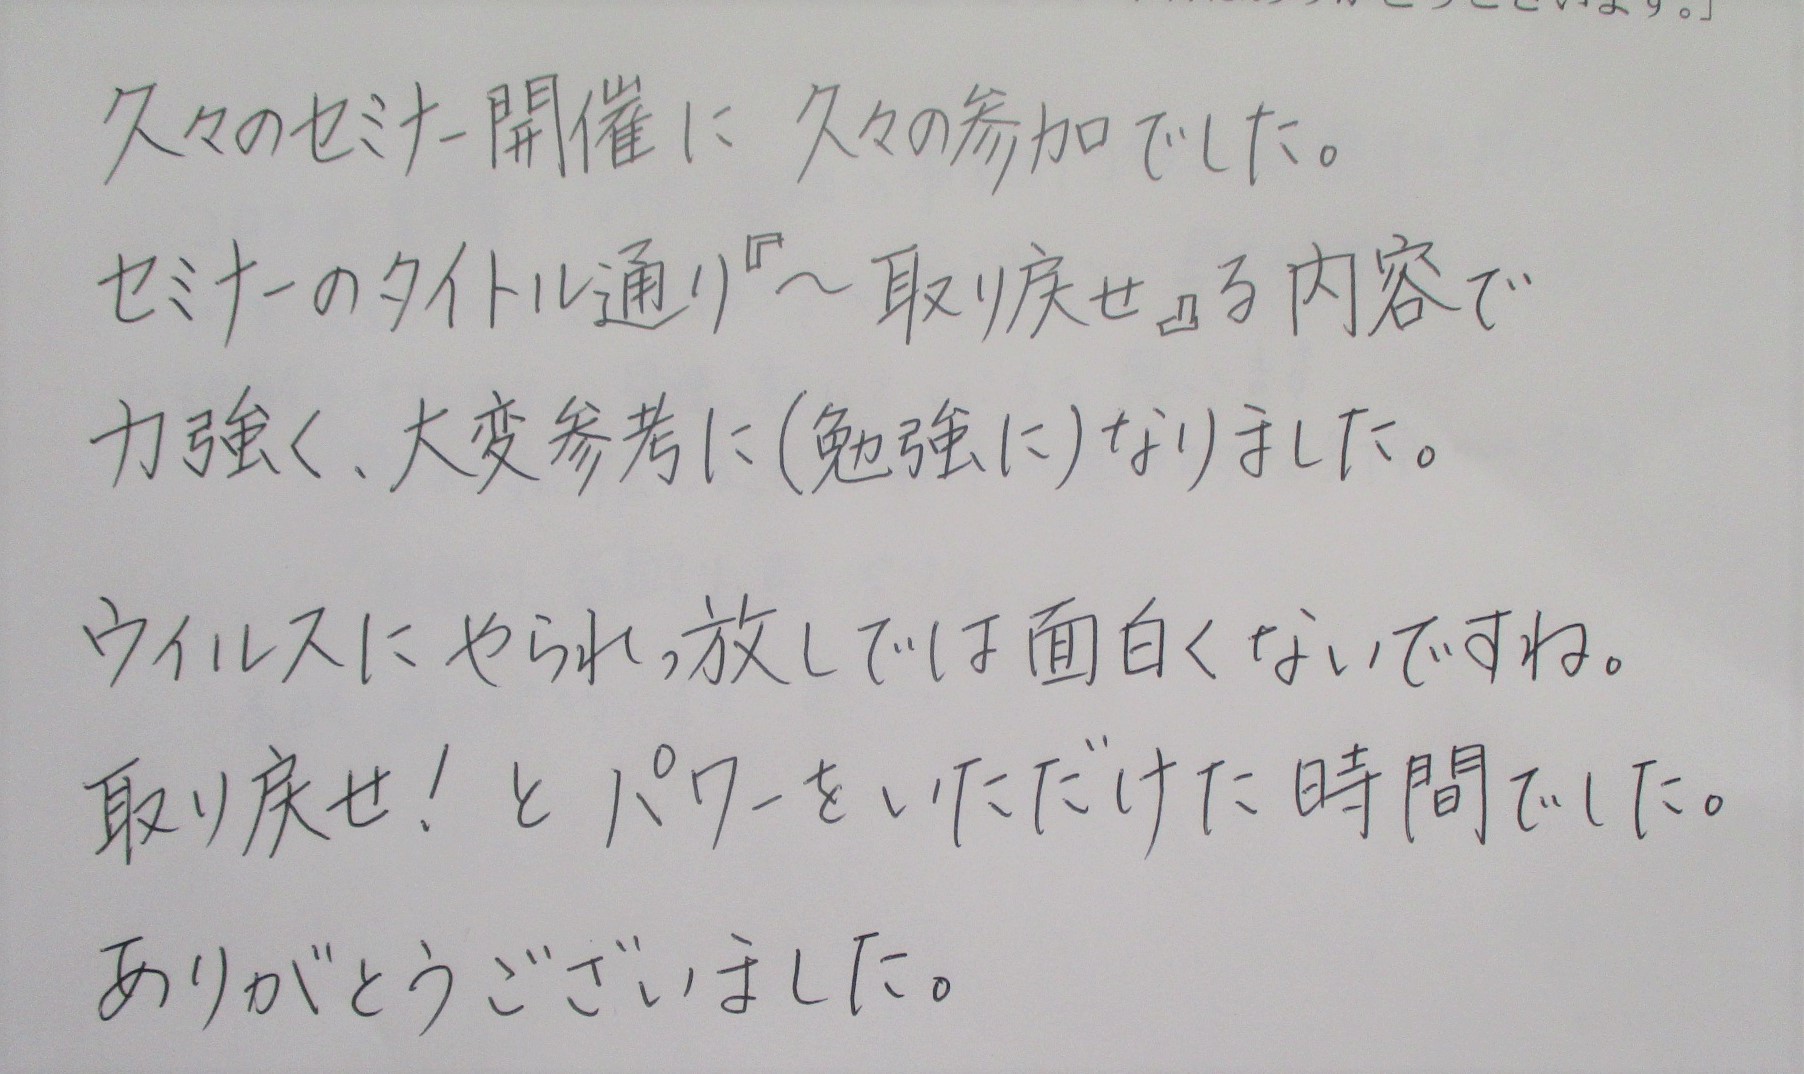 ございます。」
久々のセミナー開催に 久々の参加でした。
セミナーのタイトル通り『～取り戻せ』る内容で
力強く、大変参考に(勉強に)なりました。
ウイルスにやられっ放しでは面白くないですね。
取り戻せ！とパワーをいただけた時間でした。
ありがとうございました。